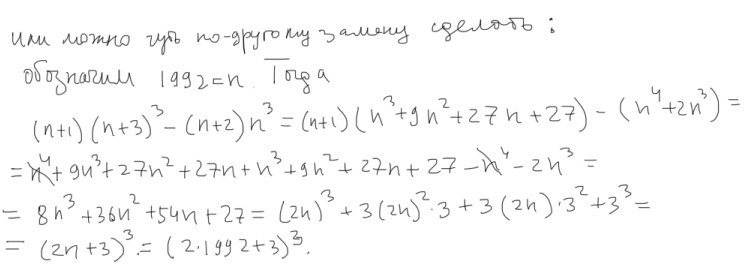 или можно чуть по-другому замену сделать:
обозначим 1992=n. Тогда
(n+1)(n+3)³-(n+2)n³=(n+1)(n³+9n²+27n+27)-(n⁴+2n³)=
=n⁴+9n³+27n²+27n+n³+9n²+27n+27-n⁴-2n³=
=8n³+36n²+54n+27=(2n)³+3(2n)²·3+3(2n)·3²+3³=
=(2n+3)³=(2·1992+3)³.